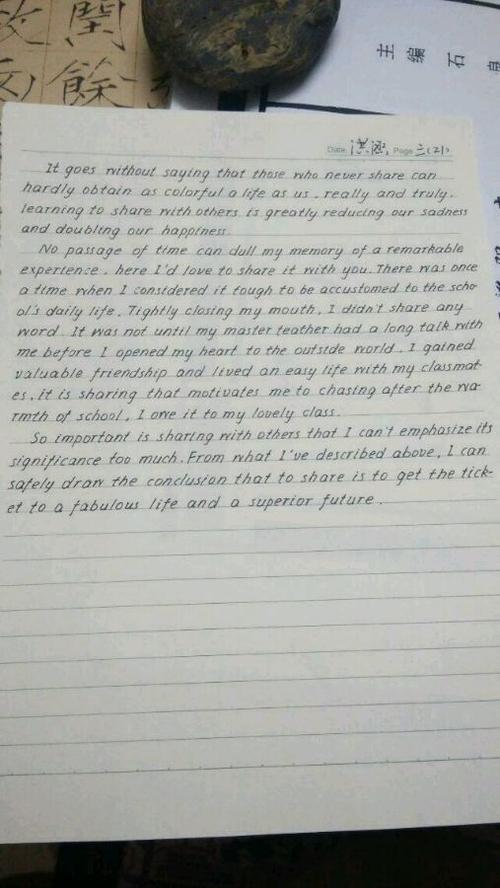 閏
餘
主编 石
Date 洪涵 Page 三(21)
It goes without saying that those who never share can
hardly obtain as colorful a life as us. really and truly.
learning to share with others is greatly reducing our sadness
and doubling our happiness.
No passage of time can dull my memory of a remarkable
experience. here I'd love to share it with you. There was once
a time when I considered it tough to be accustomed to the scho-
ol's daily life. Tightly closing my mouth, I didn't share any
word. It was not until my master teather had a long talk with
me before I opened my heart to the outside world. I gained
valuable friendship and lived an easy life with my classmat-
es, it is sharing that motivates me to chasing after the wa-
rmth of school, I owe it to my lovely class.
So important is sharing with others that I can't emphasize its
significance too much. From what I've described above, I can
safely draw the conclusion that to share is to get the tick-
et to a fabulous life and a superior future.